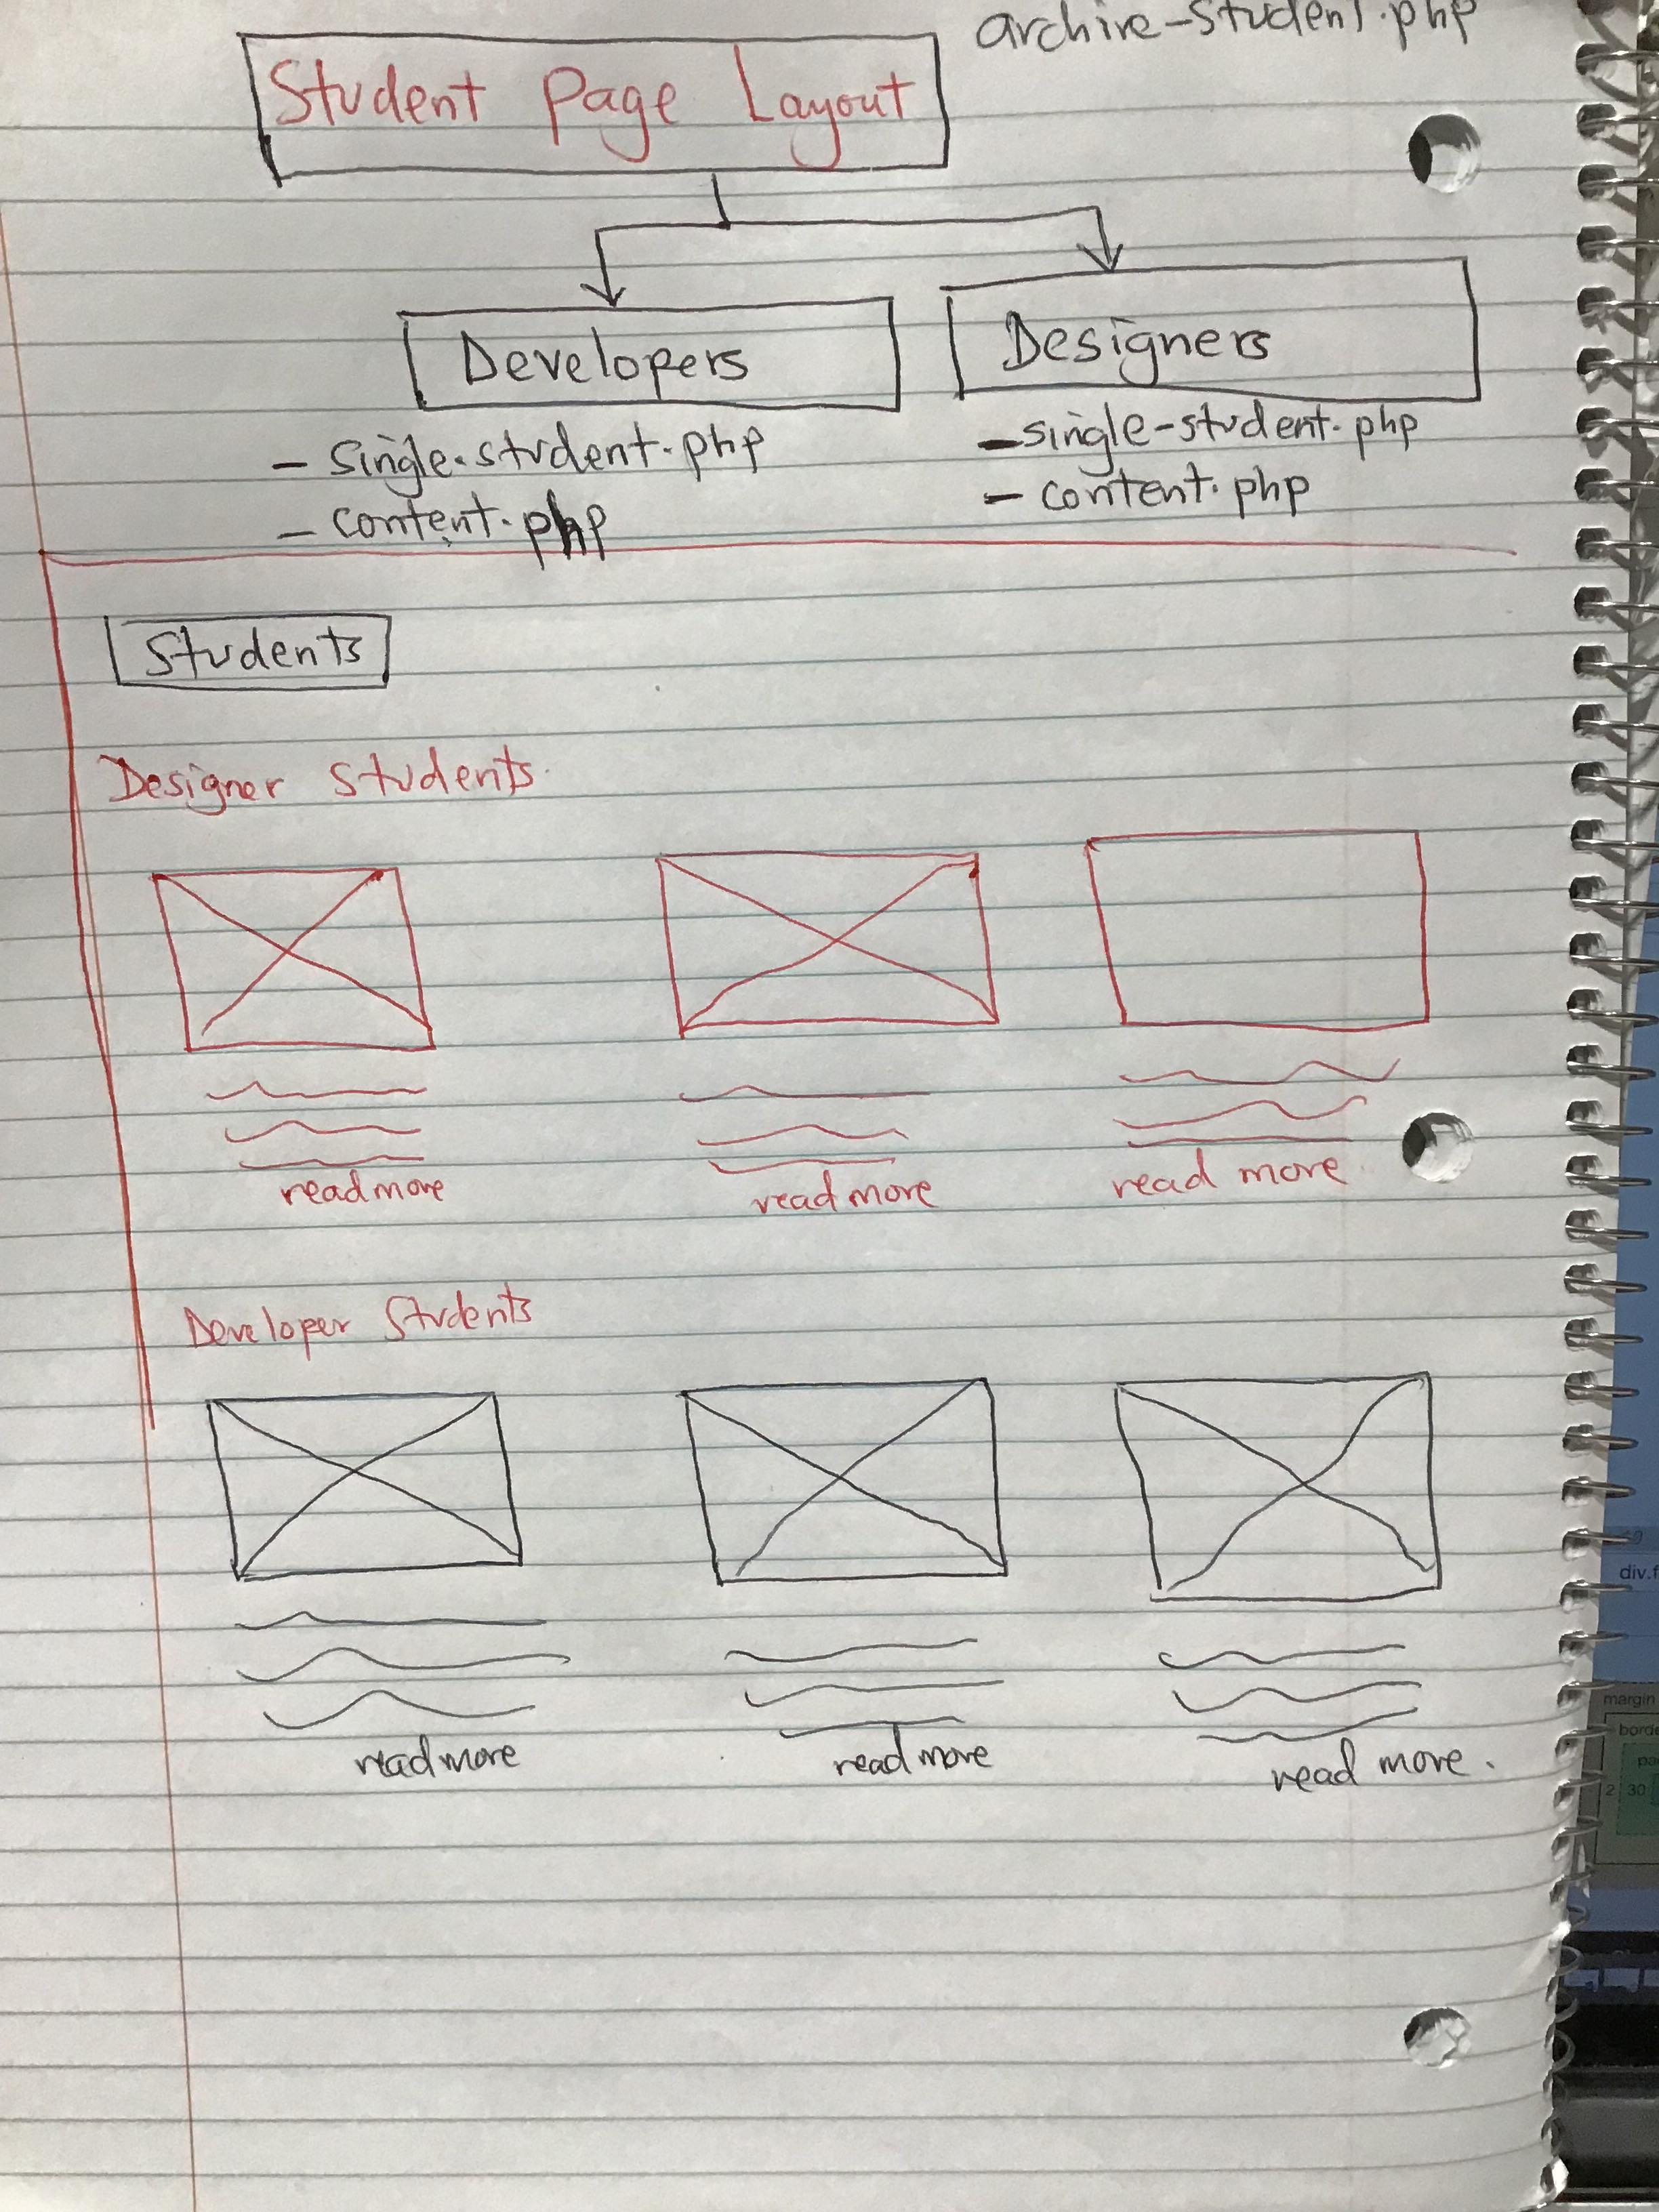 archive-student.php
Student Page Layout
Developers
Designers
- single-student.php
- content.php
- single-student.php
- content.php
Students
Designer Students
read more
read more
read more
Developer Students
read more
read more
read more.
div.f
margin
borde
pa
2
30